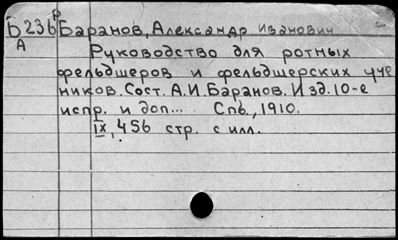 Б236р Баранов, Александр Иванович
А Руководство для ротных
фельдшеров и фельдшерских уче
ников. Сост. А.И. Баранов. Изд. 10-е
испр. и доп... Спб., 1910.
IX, 456 стр. с илл.